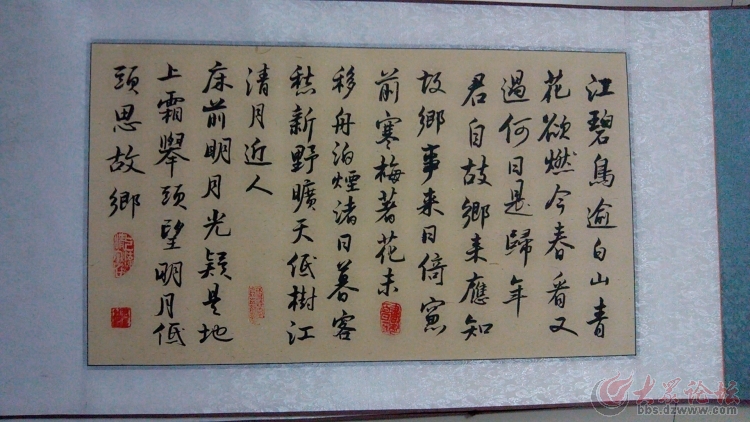 江碧鳥逾白山青
花欲燃今春看又
過何日是歸年
君自故鄉来應知
故鄉事来日倚窻
前寒梅著花未
移舟泊煙渚日暮客
愁新野曠天低樹江
清月近人
床前明月光疑是地
上霜舉頭望明月低
頭思故鄉
大众论坛
bbs.dzwww.com